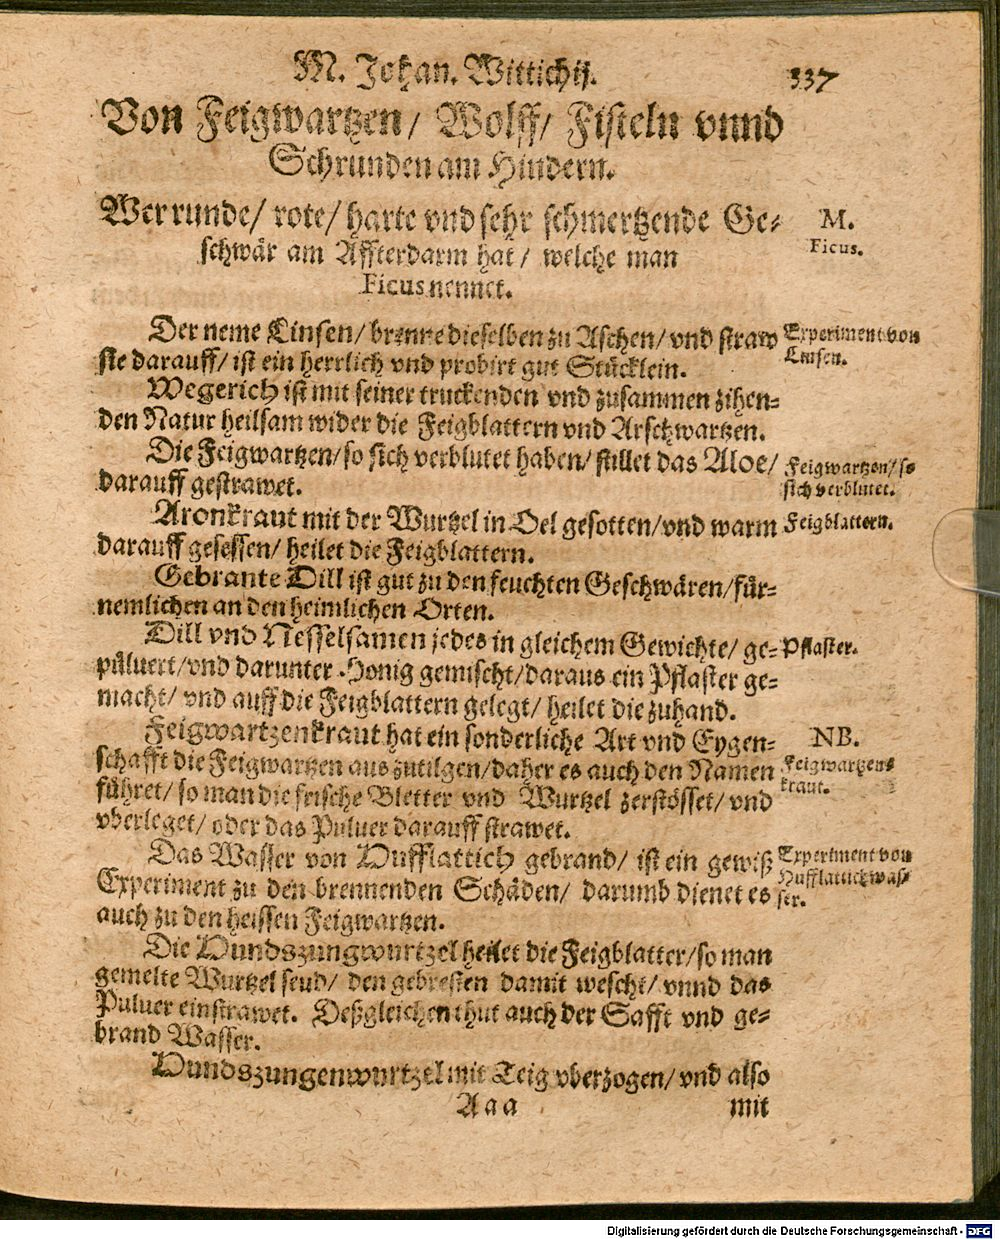 M. Johan. Wittichij. 337
Von Feigwartzen/ Wolff/ Fisteln vnnd
Schrunden am Hindern.
Wer runde/ rote/ harte vnd sehr schmertzende Ge-
schwär am Affterdarm hat/ welche man
Ficus nennet.
M.
Ficus.
Der neme Linsen/ brenne dieselben zu Aschen/ vnd straw
sie darauff/ ist ein herrlich vnd probirt gut Stücklein.
Experiment von
Linsen.
Wegerich ist mit seiner truckenden vnd zusammen zihen-
den Natur heilsam wider die Feigblattern vnd Arschwartzen.
Die Feigwartzen/ so sich verblutet haben/ stillet das Aloe/
darauff gestrawet.
Feigwartzen/ so
sich verblutet.
Aronkraut mit der Wurtzel in Oel gesotten/ vnd warm
darauff gesessen/ heilet die Feigblattern.
Feigblattern.
Gebrante Dill ist gut zu den feuchten Geschwären/ für-
nemlichen an den heimlichen Orten.
Dill vnd Nesselsamen jedes in gleichem Gewichte/ ge-
püluert/ vnd darunter Honig gemischt/ daraus ein Pflaster ge-
macht/ vnd auff die Feigblattern gelegt/ heilet die zuhand.
Pflaster.
Feigwartzenkraut hat ein sonderliche Art vnd Eygen-
schafft die Feigwartzen aus zutilgen/ daher es auch den Namen
führet/ so man die frische Bletter vnd Wurtzel zerstösset/ vnd
vberleget/ oder das Puluer darauff strawet.
NB.
Feigwartzens
kraut.
Das Wasser von Hufflattich gebrand/ ist ein gewiß
Experiment zu den brennenden Schäden/ darumb dienet es
auch zu den heissen Feigwartzen.
Experiment von
Hufflattichwas-
ser.
Die Hundszungwurtzel heilet die Feigblatter/ so man
gemelte Wurtzel seud/ den gebresten damit wescht/ vnnd das
Puluer einstrawet. Deßgleichen thut auch der Safft vnd ge-
brand Wasser.
Hundszungenwurtzel mit Teig vberzogen/ vnd also
Aaa mit
Digitalisierung gefördert durch die Deutsche Forschungsgemeinschaft - DFG